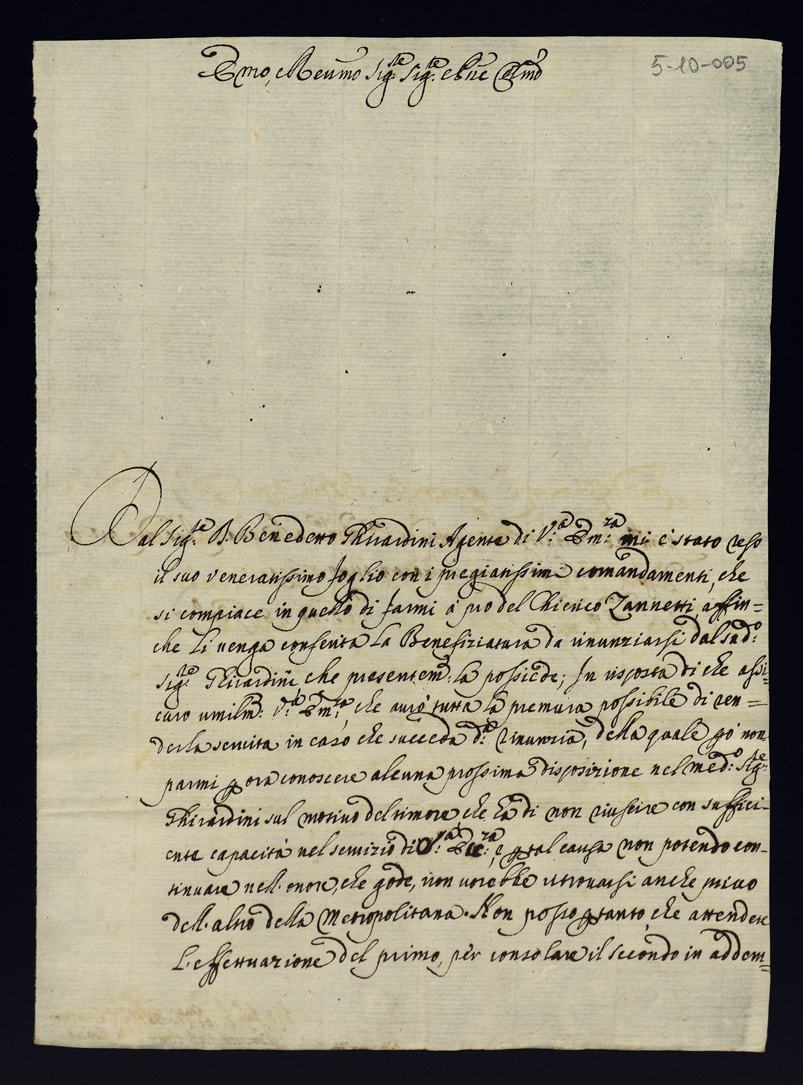 Emo, e Reumo Sig.re Sig.re e Pne Colmo
5-10-005
Dal Sig.re D. Benedetto Ghirardini Agente di V.a Em.za mi è stato reso
il suo veneratissimo foglio con i pregiatissimi comandamenti, che
si compiace in questo di farmi à prò del Chierico Zannetti affin=
che Li venga conferita La Benefiziatura da rinunziarsi dal sud.o
Sig.re Ghirardini che presentem.e la possiede; In risposta di che assi-
curo umilm.e V.a Em.za, che aurò tutta la premura possibile di ren=
derla servita in caso che succeda d.a rinunzia, della quale però non
parmi p ora conoscere alcuna prossima disposizione nel med.o Sig.re
Ghirardini sul motivo del timore che hà di non riuscire con suffici-
ente capacità nel servizio di V.a Em.za, e p tal causa non potendo con-
tinuare nell'onore, che gode, non vorebbe ritrovarsi anche privo
dell'altro della Metropolitana. Non posso p tanto che attendere
L'effettuazione del primo, per consolare il secondo in adem=